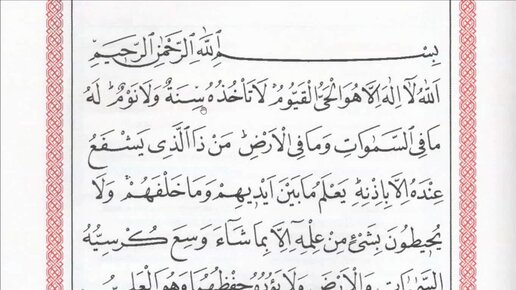 بِسْمِ اللهِ الرَّحْمٰنِ الرَّحِيمِ
اَللهُ لَٓا اِلٰهَ اِلَّا هُوَ الْحَىُّ الْقَيُّومُ لَا تَأْخُذُهُ سِنَةٌ وَلَا نَوْمٌ لَهُ
مَا فِى السَّمٰوَاتِ وَمَا فِى الْاَرْضِ مَنْ ذَا الَّذِى يَشْفَعُ
عِنْدَهُٓ اِلَّا بِاِذْنِهِ يَعْلَمُ مَا بَيْنَ اَيْدِيهِمْ وَمَا خَلْفَهُمْ وَلَا
يُحِيطُونَ بِشَىْءٍ مِنْ عِلْمِهِٓ اِلَّا بِمَا شَٓاءَ وَسِعَ كُرْسِيُّهُ
السَّمٰوَاتِ وَالْاَرْضَ وَلَا يَؤُدُهُ حِفْظُهُمَا وَهُوَ الْعَلِىُّ